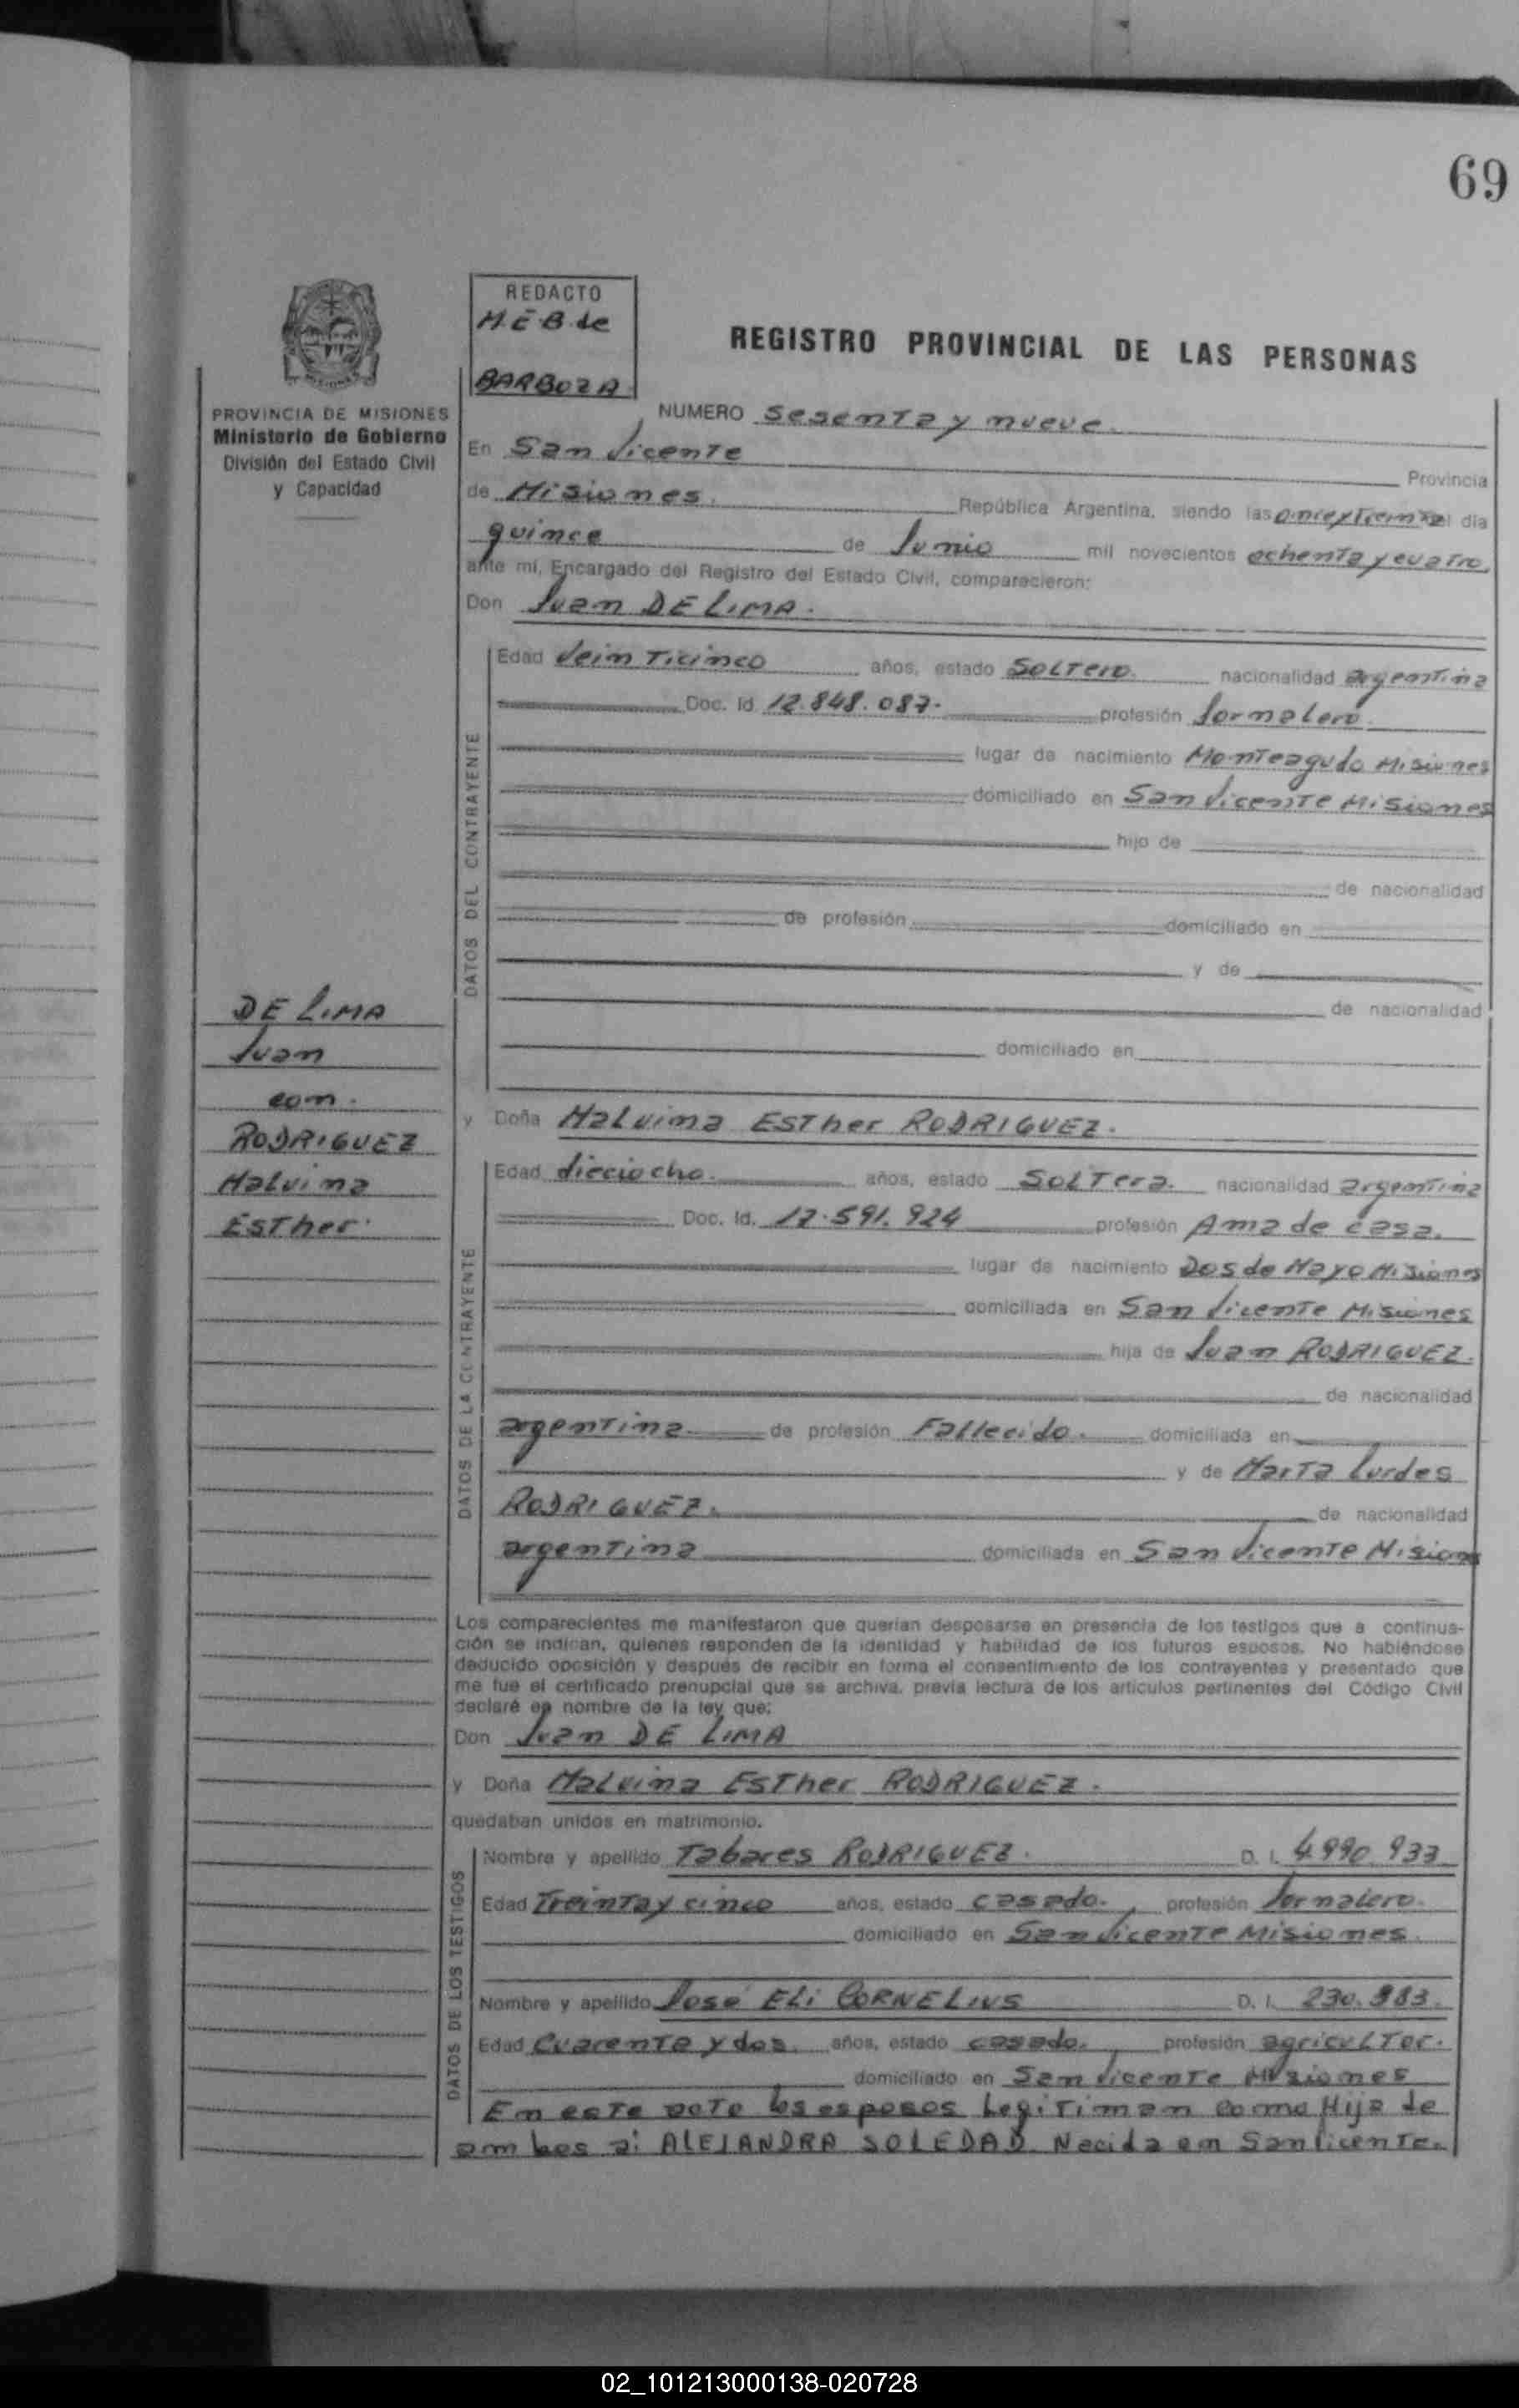 69
REDACTO
M.E.B. de
BARBOZA
REGISTRO PROVINCIAL DE LAS PERSONAS
PROVINCIA DE MISIONES
Ministerio de Gobierno
División del Estado Civil
y Capacidad
NUMERO Sesenta y nueve.
En San Vicente Provincia
de Misiones. República Argentina, siendo las once y treinta el día
quince de Junio mil novecientos ochenta y cuatro,
ante mi, Encargado del Registro del Estado Civil, comparecieron:
Don Juan DE LIMA.
DATOS DEL CONTRAYENTE
Edad Veinticinco años, estado Soltero. nacionalidad argentina
Doc. Id. 12.848.087. profesión Jornalero.
lugar de nacimiento Monteagudo Misiones
domiciliado en San Vicente Misiones
hijo de
de nacionalidad
de profesión domiciliado en
y de
de nacionalidad
domiciliado en
DE LIMA
Juan
con.
RODRIGUEZ
Malvina
Esther.
y Doña Malvina Esther RODRIGUEZ.
DATOS DE LA CONTRAYENTE
Edad dieciocho. años, estado Soltera. nacionalidad argentina
Doc. Id. 17.591.924 profesión Ama de casa.
lugar de nacimiento Dos de Mayo Misiones
domiciliada en San Vicente Misiones
hija de Juan RODRIGUEZ.
de nacionalidad
argentina de profesión Fallecido. domiciliada en
y de Marta Lurdes
RODRIGUEZ. de nacionalidad
argentina domiciliada en San Vicente Misiones
Los comparecientes me manifestaron que querían desposarse en presencia de los testigos que a continua-
ción se indican, quienes responden de la identidad y habilidad de los futuros esposos. No habiéndose
deducido oposición y después de recibir en forma el consentimiento de los contrayentes y presentado que
me fue el certificado prenupcial que se archiva, previa lectura de los artículos pertinentes del Código Civil
declaré en nombre de la ley que:
Don Juan DE LIMA
y Doña Malvina Esther RODRIGUEZ.
quedaban unidos en matrimonio.
DATOS DE LOS TESTIGOS
Nombre y apellido Tabares RODRIGUEZ. D. I. 4.990.933
Edad Treinta y cinco años, estado casado. profesión Jornalero.
domiciliado en San Vicente Misiones.
Nombre y apellido José Eli CORNELIUS D. I. 230.983.
Edad Cuarenta y dos. años, estado casado. profesión agricultor.
domiciliado en San Vicente Misiones
En este acto los esposos Legitiman como Hija de
ambos a: ALEJANDRA SOLEDAD. Nacida en San Vicente.
02_101213000138-020728